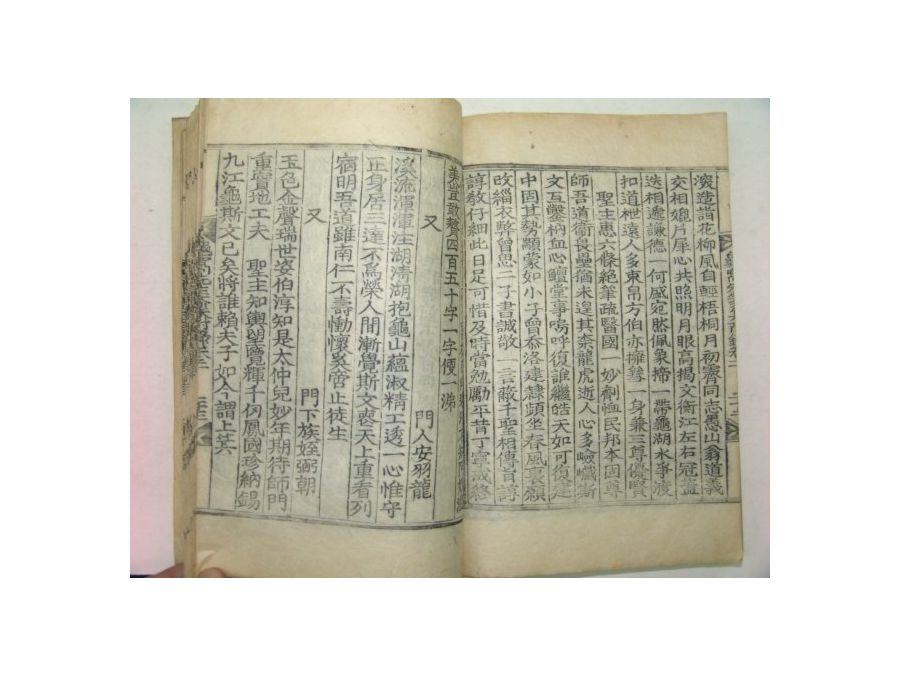 濱造詣花柳風自輕梧桐月初霽同志愚山翁道義
交相媲片犀心共照明月眼高揭文衡江左右冠蓋
迭相遞謙德一何盛宛然佩象揥一帶龜湖水爭渡
扣道泄遠人多束帛方伯亦擁篲一身兼三尊優賢
聖主惠六條絶筆疏醫國一妙劑恤民邦本固尊
師吾道衛畏壘猶未遑其柰龍虎逝人心多嶮巇斯
文互鑿枘血心壇堂事嗚呼復誰繼皓天如可復
中固其勢顓蒙如小子曾忝洛建隸頻坐春風
改緇衣弊曾思二子書誠敬一言蔽千聖相傳旨諄
諄敎仔細此日足可惜及時當勉勵平昔丁寧誡終
敢 四百五十字一字便一涕
又 門人安羽龍
溪流渾渾注湖淸湖抱龜山蘊淑精工透一心惟守
正身居三達不爲榮人間漸覺斯文喪天上重看列
宿明吾道雖南仁不壽慟懷奚啻止徒生
又 門下族姪弼朝
玉色金聲瑞世姿伯淳知是太仲兒妙年期待師門
重實地工夫 聖主知輿望覽輝千仞鳳國珍納錫
九江龜斯文已矣將誰賴夫子如今謂上